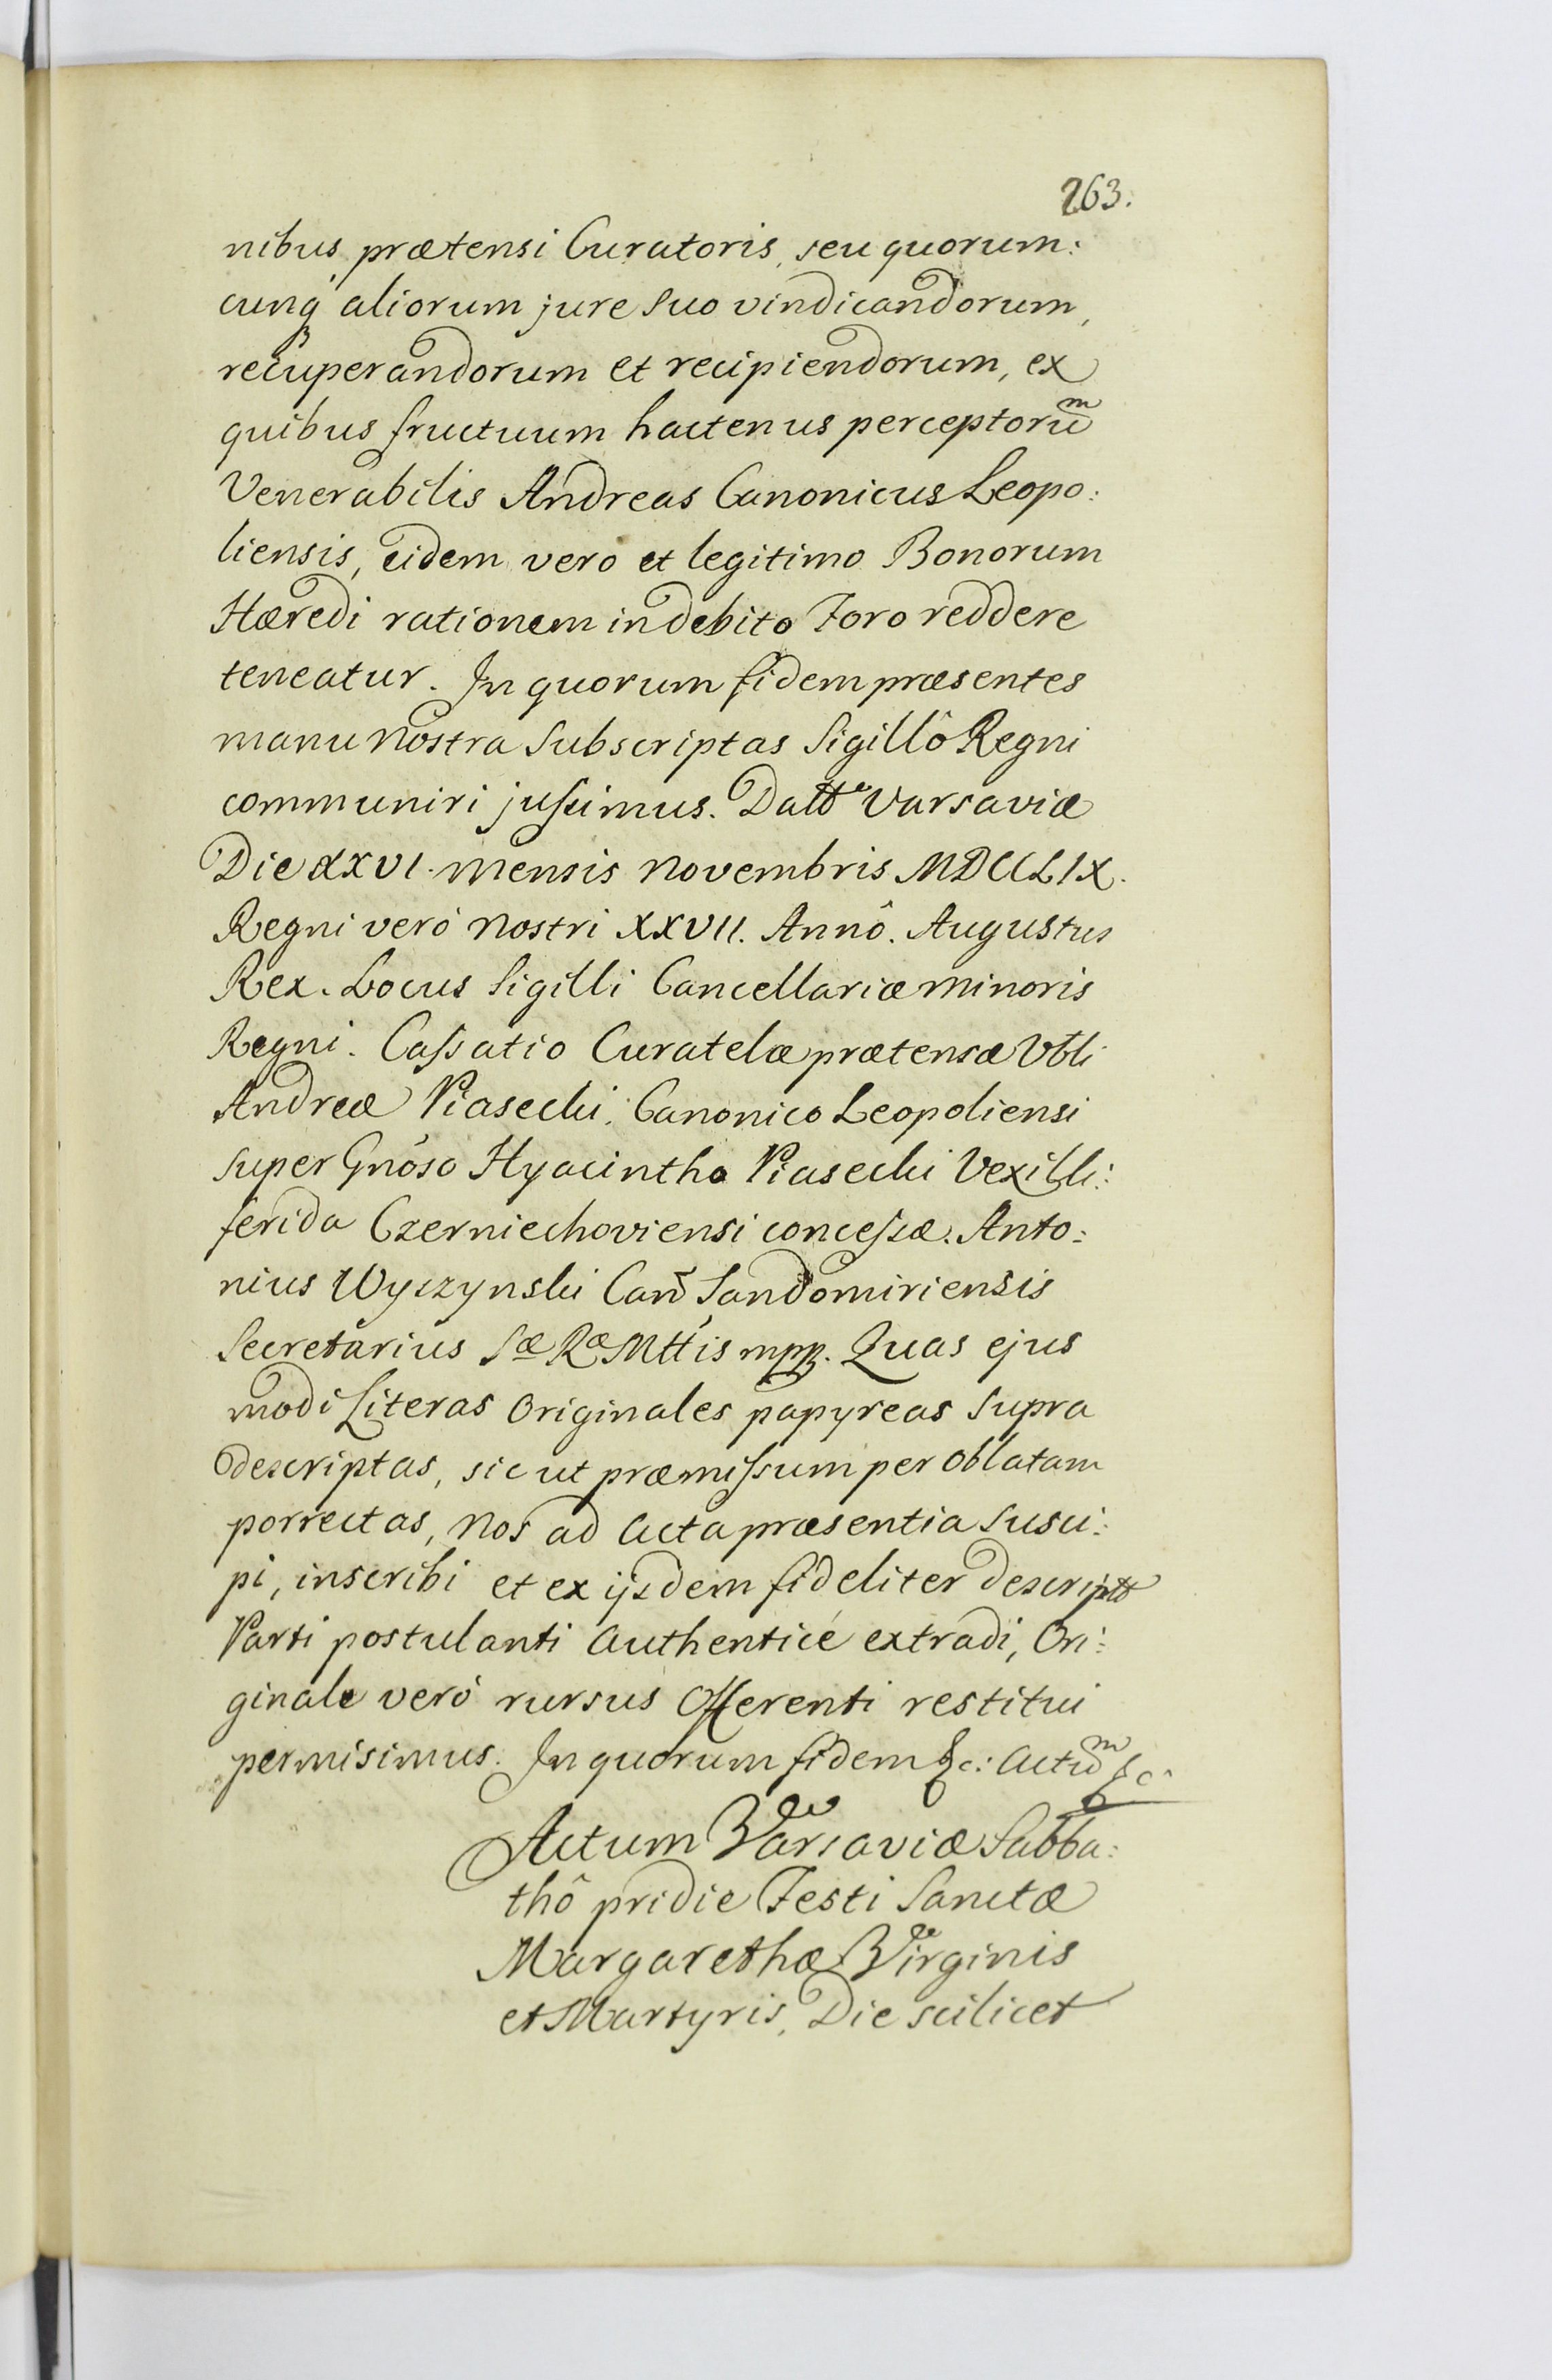 263.
nibus prætensi Curatoris, seu quorum:
cunq aliorum jure suo vindicandorum,
recuperandorum et recipiendorum, ex
quibus fructuum hactenus perceptorũm
Venerabilis Andreas Canonicus Leopo:
liensis, eidem vero et legitimo Bonorum
Hæredi rationem in debito Foro reddere
teneatur. In quorum fidem præsentes
manu nostra subscriptas Sigillô Regni
communiri jussimus. Datt Varsaviæ
Die XXVI. mensis Novembris MDCCLIX.
Regni verò nostri XXVII. Annô. Augustus
Rex. Locus Sigilli Cancellariæ minoris
Regni. Cassatio Curatelæ prætensæ Vbli
Andreæ Piasecki Canonico Leopoliensi
super Gnôso Hyacintho Piasecki Vexilli:
ferida Czerniechoviensi concessæ. Anto:
nius Wyszynski Cañ Sandomiriensis
Secretarius Sæ Ræ Mttis mpp. Quas ejus
modi Literas Originales papyreas supra
descriptas, sicut præmissum per Oblatam
porrectas, Nos ad Acta præsentia susci:
pi, inscribi et ex ijsdem fideliter descriptt
Parti postulanti Authenticé extradi, Ori:
ginale verò rursus Offerenti restitui
permisimus. In quorum fidem &c: Actũm &c.
Actum Varsaviæ Sabba:
thô pridie Festi Sanctæ
Margarethæ Virginis
et Martyris, Die scilicet